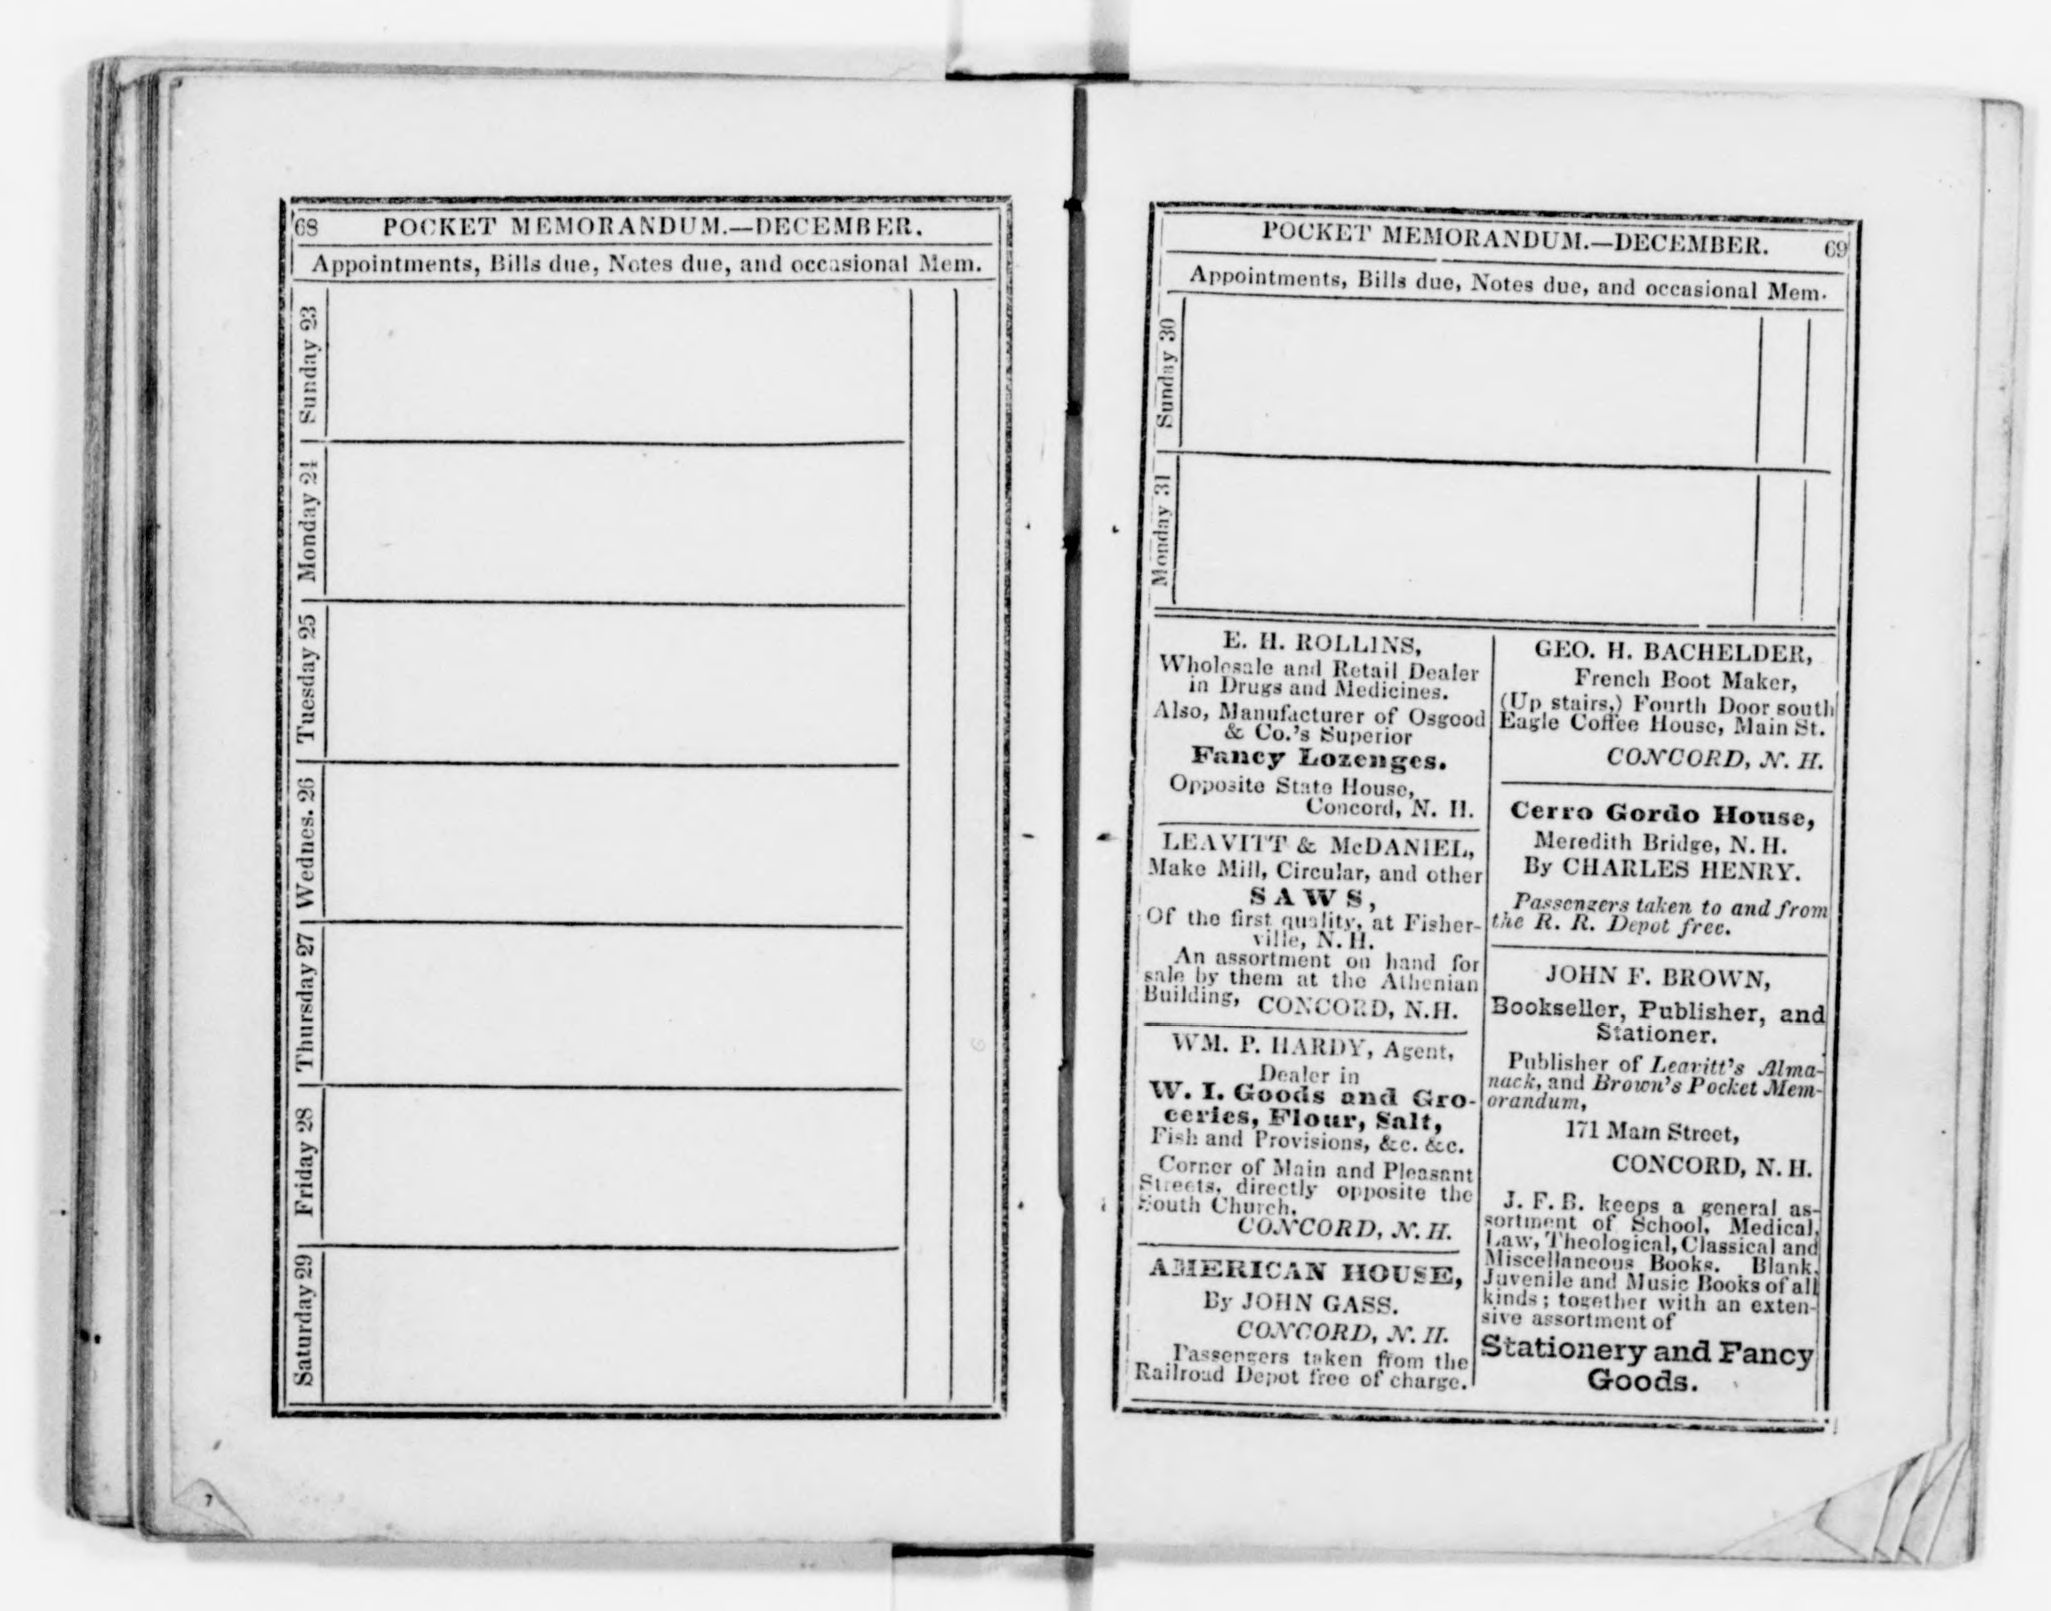 68 POCKET MEMORANDUM.—DECEMBER.
Appointments, Bills due, Notes due, and occasional Mem.
Sunday 23
Monday 24
Tuesday 25
Wednes. 26
Thursday 27
Friday 28
Saturday 29
7
POCKET MEMORANDUM.—DECEMBER. 69
Appointments, Bills due, Notes due, and occasional Mem.
Sunday 30
Monday 31
E. H. ROLLINS,
Wholesale and Retail Dealer
in Drugs and Medicines.
Also, Manufacturer of Osgood
& Co.'s Superior
Fancy Lozenges.
Opposite State House,
Concord, N. H.
LEAVITT & McDANIEL,
Make Mill, Circular, and other
SAWS,
Of the first quality, at Fisher-
ville, N. H.
An assortment on hand for
sale by them at the Athenian
Building, CONCORD, N.H.
WM. P. HARDY, Agent,
Dealer in
W. I. Goods and Gro-
ceries, Flour, Salt,
Fish and Provisions, &c. &c.
Corner of Main and Pleasant
Streets, directly opposite the
South Church.
CONCORD, N. H.
AMERICAN HOUSE,
By JOHN GASS.
CONCORD, N. H.
Passengers taken from the
Railroad Depot free of charge.
GEO. H. BACHELDER,
French Boot Maker,
(Up stairs,) Fourth Door south
Eagle Coffee House, Main St.
CONCORD, N. H.
Cerro Gordo House,
Meredith Bridge, N. H.
By CHARLES HENRY.
Passengers taken to and from
the R. R. Depot free.
JOHN F. BROWN,
Bookseller, Publisher, and
Stationer.
Publisher of Leavitt's Alma-
nack, and Brown's Pocket Mem-
orandum,
171 Main Street,
CONCORD, N. H.
J. F. B. keeps a general as-
sortment of School, Medical,
Law, Theological, Classical and
Miscellaneous Books. Blank,
Juvenile and Music Books of all
kinds; together with an exten-
sive assortment of
Stationery and Fancy
Goods.